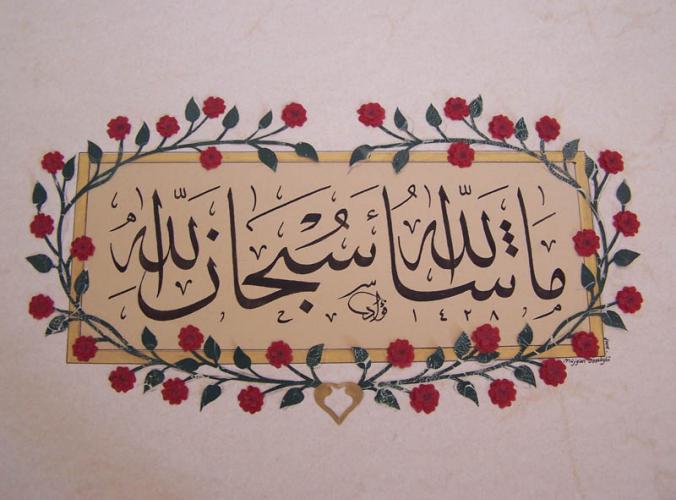 ما شاء الله سبحان الله
فؤاد ١٤٢٨